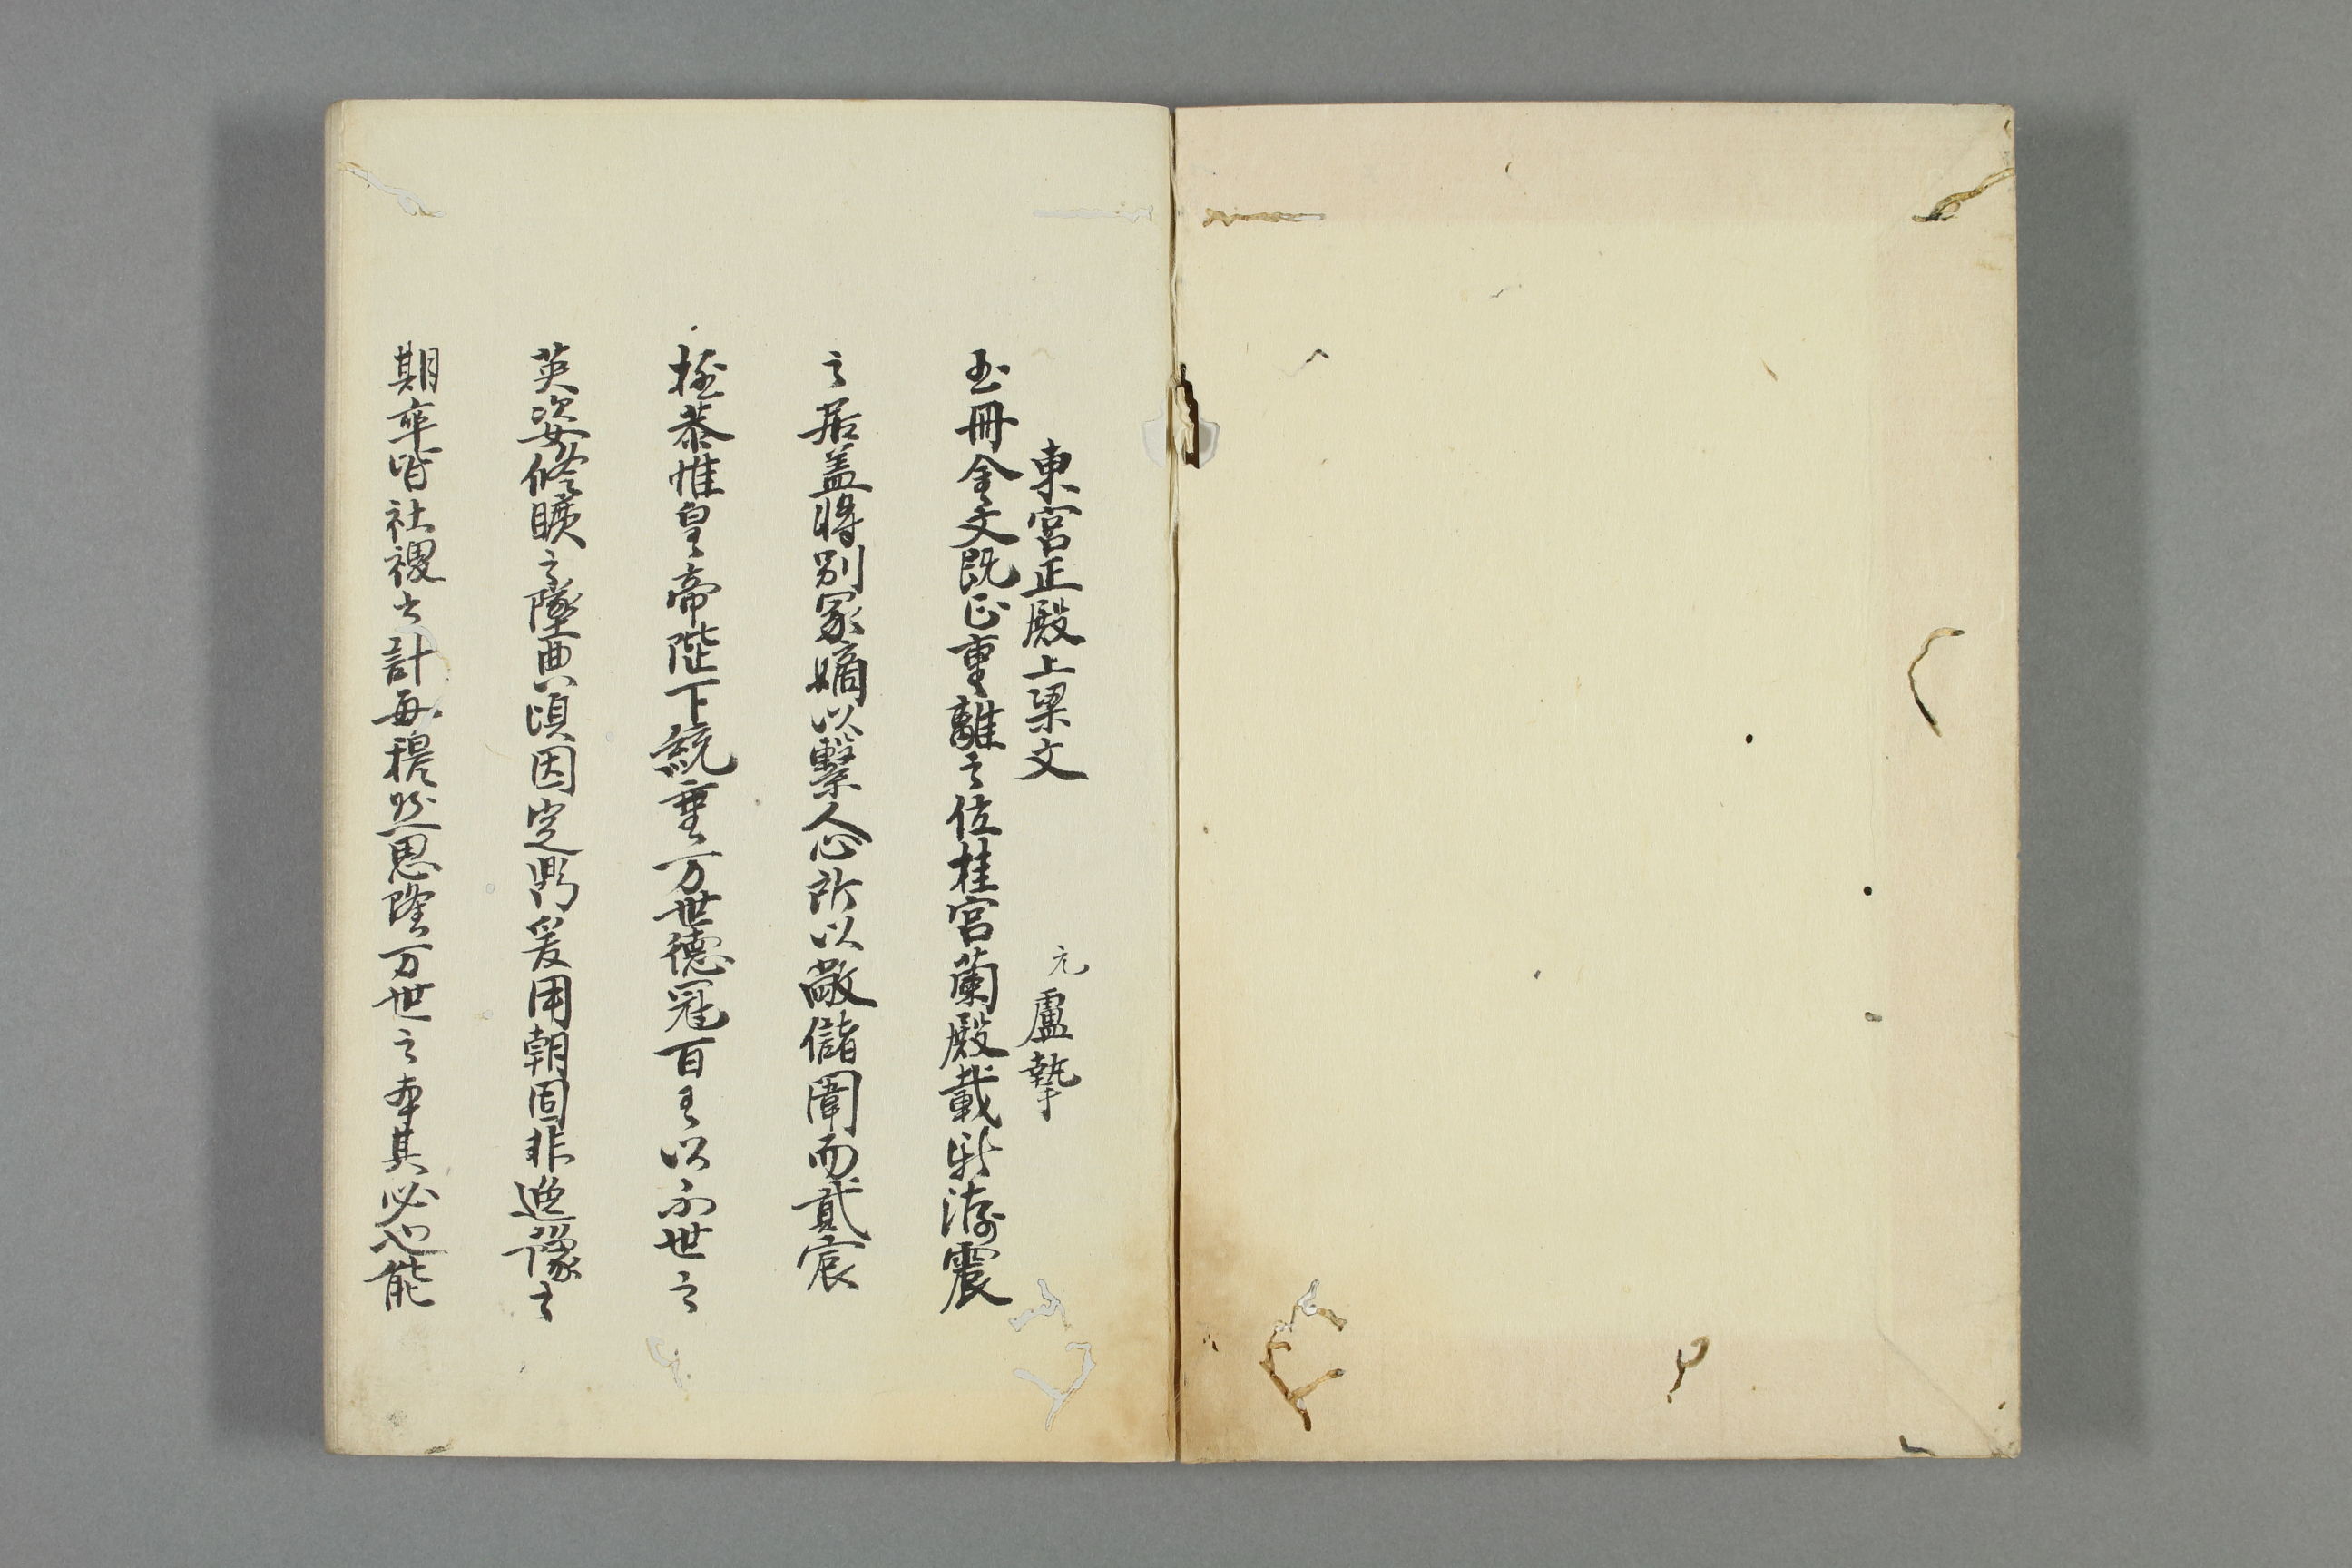 東宮正殿上梁文 元 盧摯
玉冊金文既正重離之位桂宮蘭殿載新洊震
之居盖將別冢嫡以繫人心所以敞儲闈而貳宸
極恭惟皇帝陛下統垂万世德冠百王以不世之
英姿修曠之墜典頃因定鼎爰用朝固非逸豫之
期率皆社稷之計每穆然思隆万世之本其必也能